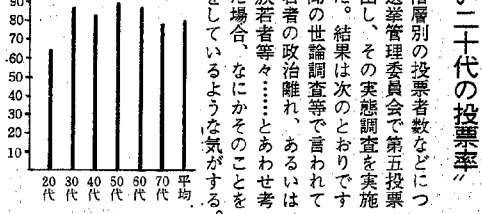 い二十代の投票率〟
階層別の投票者数などにつ
選挙管理委員会で第五投票
出し、その実態調査を実施
た。結果は次のとおりです
聞の世論調査等で言われて
若者の政治離れ、あるいは
族若者等々……とあわせ考
た場合、なにかそのことを
をしているような気がする。
90
80
70
60
50
40
30
20
10
20代
30代
40代
50代
60代
70代
平均